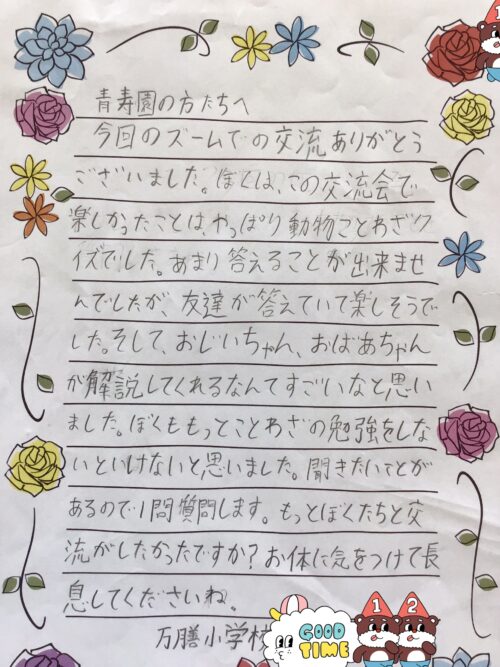 青寿園の方たちへ
今回のズームでの交流ありがとう
ございました。ぼくは、この交流会で
楽しかったことは、やっぱり動物ことわざク
イズでした。あまり答えることが出来ませ
んでしたが、友達が答えていて楽しそうで
した。そして、おじいちゃん、おばあちゃん
が解説してくれるなんてすごいなと思い
ました。ぼくももっとことわざの勉強をしな
いといけないと思いました。聞きたいことが
あるので1問質問します。もっとぼくたちと交
流がしたかったですか?お体に気をつけて長
息してくださいね。
万膳小学校
GOOD TIME
1 2
1